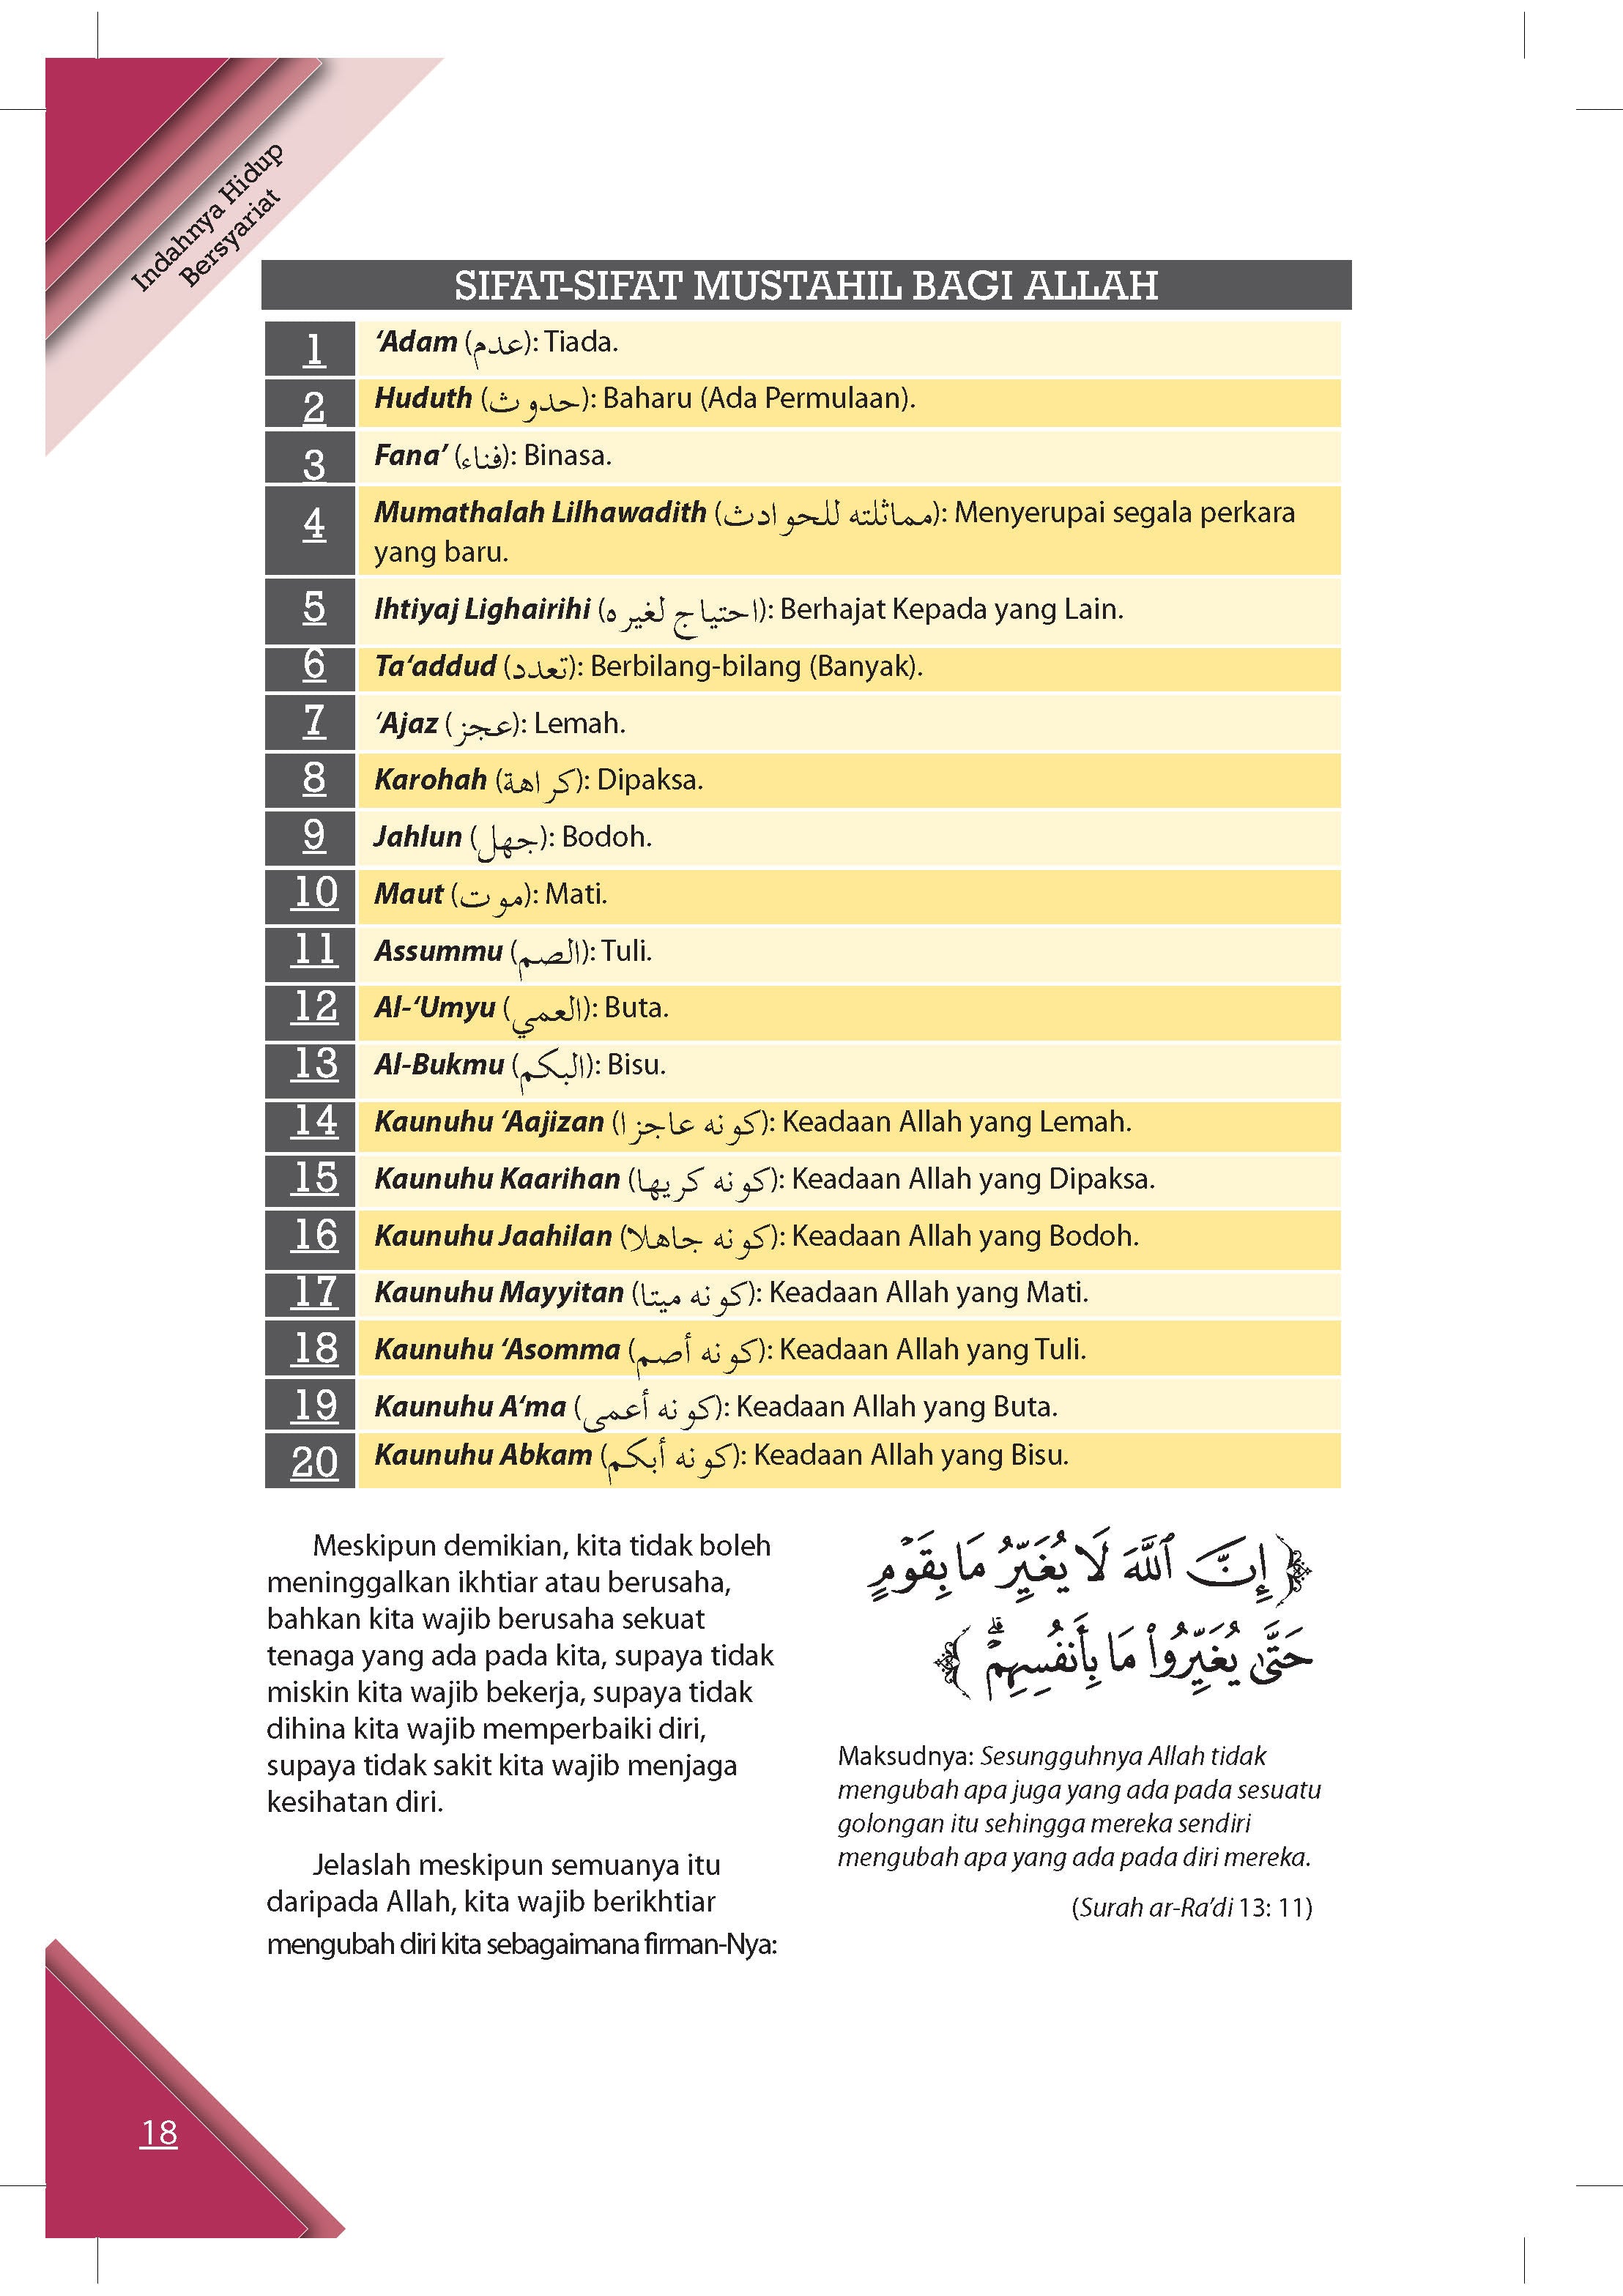 Indahnya Hidup
Bersyariat
SIFAT-SIFAT MUSTAHIL BAGI ALLAH
1 ‘Adam (عدم): Tiada.
2 Huduth (حدوث): Baharu (Ada Permulaan).
3 Fana’ (فناء): Binasa.
4 Mumathalah Lilhawadith (مماثلته للحوادث): Menyerupai segala perkara
yang baru.
5 Ihtiyaj Lighairihi (احتياج لغيره): Berhajat Kepada yang Lain.
6 Ta‘addud (تعدد): Berbilang-bilang (Banyak).
7 ‘Ajaz (عجز): Lemah.
8 Karohah (كراهة): Dipaksa.
9 Jahlun (جهل): Bodoh.
10 Maut (موت): Mati.
11 Assummu (الصم): Tuli.
12 Al-‘Umyu (العمي): Buta.
13 Al-Bukmu (البكم): Bisu.
14 Kaunuhu ‘Aajizan (كونه عاجزا): Keadaan Allah yang Lemah.
15 Kaunuhu Kaarihan (كونه كريها): Keadaan Allah yang Dipaksa.
16 Kaunuhu Jaahilan (كونه جاهلا): Keadaan Allah yang Bodoh.
17 Kaunuhu Mayyitan (كونه ميتا): Keadaan Allah yang Mati.
18 Kaunuhu ‘Asomma (كونه أصم): Keadaan Allah yang Tuli.
19 Kaunuhu A‘ma (كونه أعمى): Keadaan Allah yang Buta.
20 Kaunuhu Abkam (كونه أبكم): Keadaan Allah yang Bisu.
Meskipun demikian, kita tidak boleh
meninggalkan ikhtiar atau berusaha,
bahkan kita wajib berusaha sekuat
tenaga yang ada pada kita, supaya tidak
miskin kita wajib bekerja, supaya tidak
dihina kita wajib memperbaiki diri,
supaya tidak sakit kita wajib menjaga
kesihatan diri.
Jelaslah meskipun semuanya itu
daripada Allah, kita wajib berikhtiar
mengubah diri kita sebagaimana firman-Nya:
﴿ إِنَّ ٱللَّهَ لَا يُغَيِّرُ مَا بِقَوْمٍ
حَتَّىٰ يُغَيِّرُوا۟ مَا بِأَنفُسِهِمْ ۗ ﴾
Maksudnya: Sesungguhnya Allah tidak
mengubah apa juga yang ada pada sesuatu
golongan itu sehingga mereka sendiri
mengubah apa yang ada pada diri mereka.
(Surah ar-Ra’di 13: 11)
18